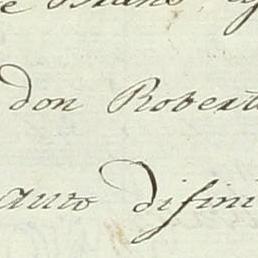 don Robert
auto difini